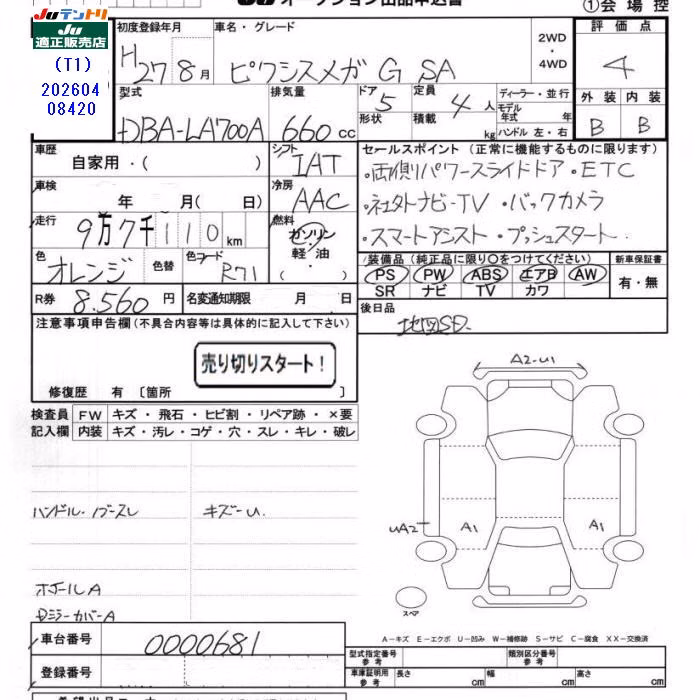 JUテントリ
JU
適正販売店
(T1)
202604
08420
①会場控
初度登録年月 車名・グレード 2WD・4WD 評価点
H27 8月 ピクシスメガ G SA 4
型式 排気量 ドア 5 定員 4人 ディーラー・並行 外装 内装
形状 積載 kg モデル年式 年 ハンドル 左・右
DBA-LA700A 660cc B B
車歴 自家用・( ) シフト IAT
セールスポイント(正常に機能するものに限ります)
・両側パワースライドドア・ETC
車検 年 月( 日) 冷房 AAC
・社外ナビ-TV・バックカメラ
走行 9万7千110km 燃料 ガソリン 軽油・( )
・スマートアシスト・プッシュスタート
色 オレンジ 色替 色コード R71
装備品(純正品に限り○をつけてください) 新車保証書
PS PW ABS エアB AW 有・無
SR ナビ TV カワ
R券 8.560円 名変通知期限 月 日
後日品 地図SD
注意事項申告欄(不具合内容等は具体的に記入して下さい)
売り切りスタート!
修復歴 有〔箇所 〕
検査員 FW キズ・飛石・ヒビ割・リペア跡・×要
記入欄 内装 キズ・汚レ・コゲ・穴・スレ・キレ・破レ
A2-U1
ハンドル・ブースレ キズーU
UA2 A1 A1
ホイールA
Dミラーカバー A
スペア
A-キズ E-エクボ U-凹み W-補修跡 S-サビ C-腐食 XX-交換済
車台番号 0000681
型式指定番号 参考 類別区分番号 参考
登録番号
車庫証明用 参考 長さ cm 幅 cm 高さ cm